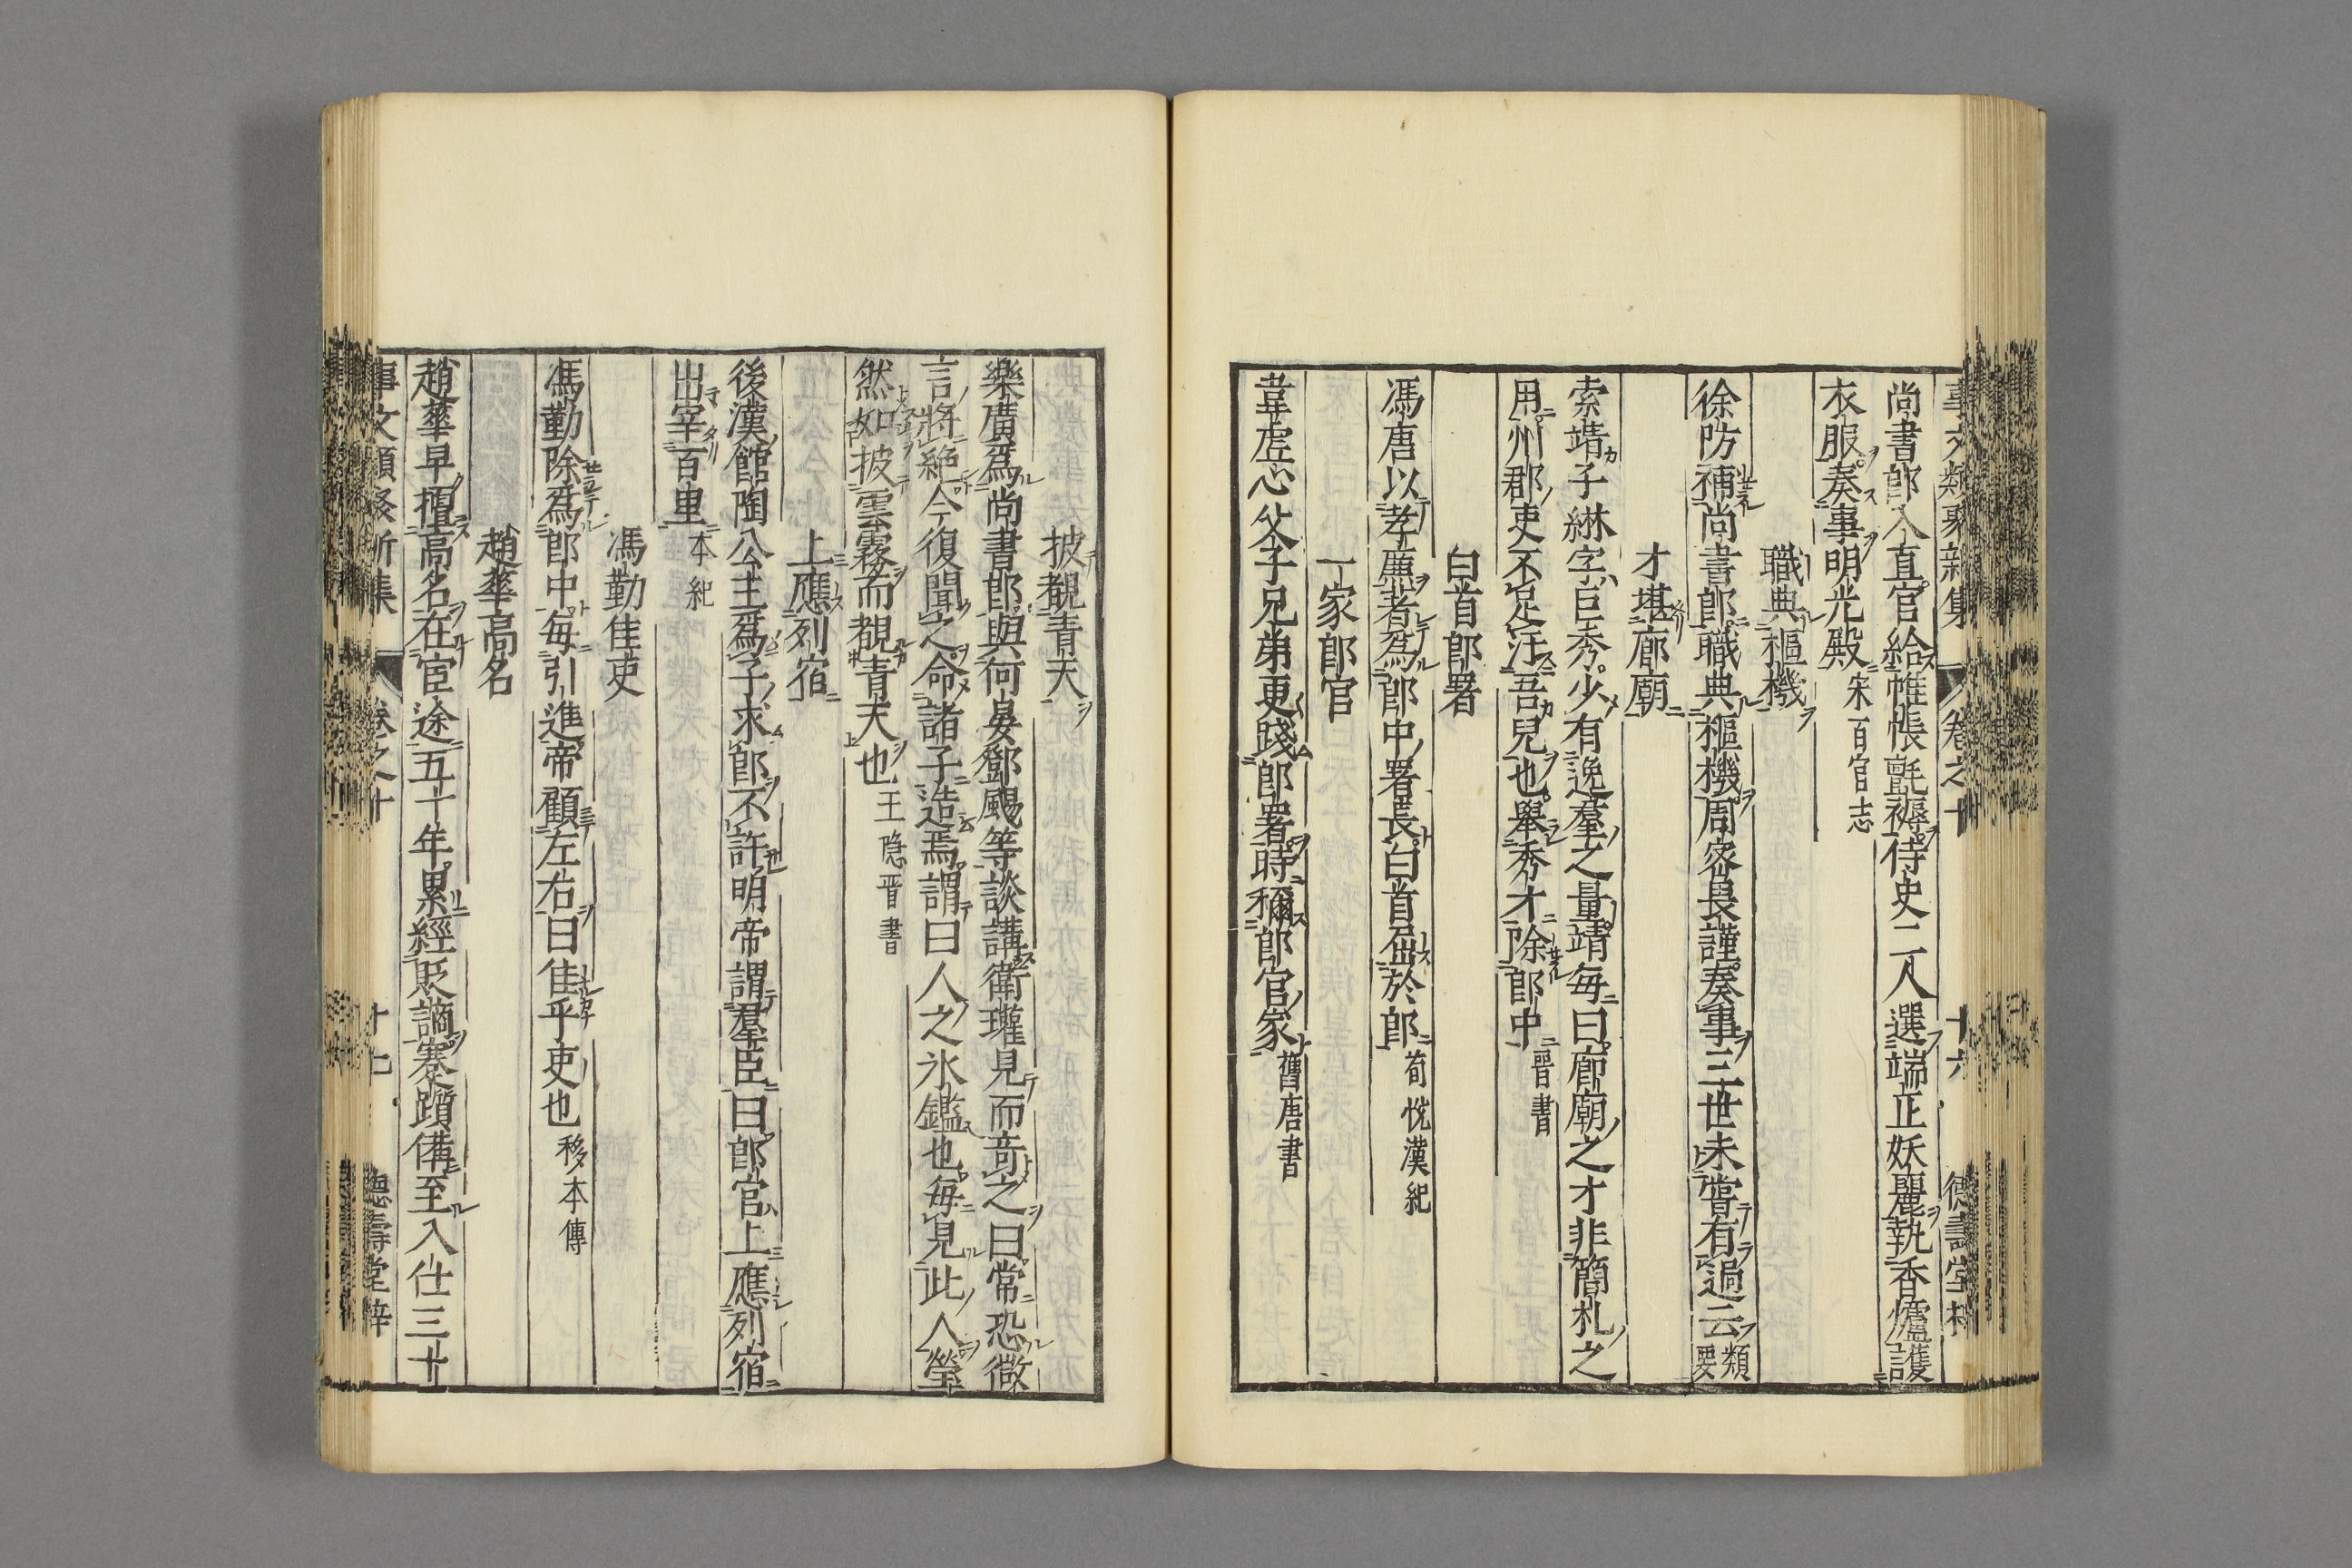 尚書郎入直官給帷帳氈褥侍史二人選端正妖麗執香爐護
衣服奏事明光殿宋百官志
職典樞機
徐防補尚書郎職典樞機周密畏謹奏事三世未嘗有過云類要
才堪廊廟
索靖子綝字巨秀少有逸羣之量靖毎曰廊廟之才非簡札之
用州郡吏不足汙吾兒也舉秀才除郎中晋書
白首郎署
馮唐以孝廉著爲郎中署長白首屈於郎荀悅漢紀
一家郎官
韋虚心父子兄弟更踐郎署時穪郎官家舊唐書
披覩青天
樂廣爲尚書郎與何晏鄧颺等談講衛瓘見而竒之曰常恐微
言將絶今復聞之命諸子造焉謂曰人之氷鑑也毎見此人瑩
然如披雲霧而覩青天也王隐晋書
上應列宿
後漢館陶公主爲子求郎不許明帝謂羣臣曰郎官上應列宿
出宰百里本紀
馮勤佳吏
馮勤除爲郎中毎引進帝顧左右曰佳乎吏也移本傳
趙華高名
趙華早擅高名在宦途五十年累經貶謫蹇躓備至入仕三十
事文類聚新集 卷之十 十七 德壽堂梓